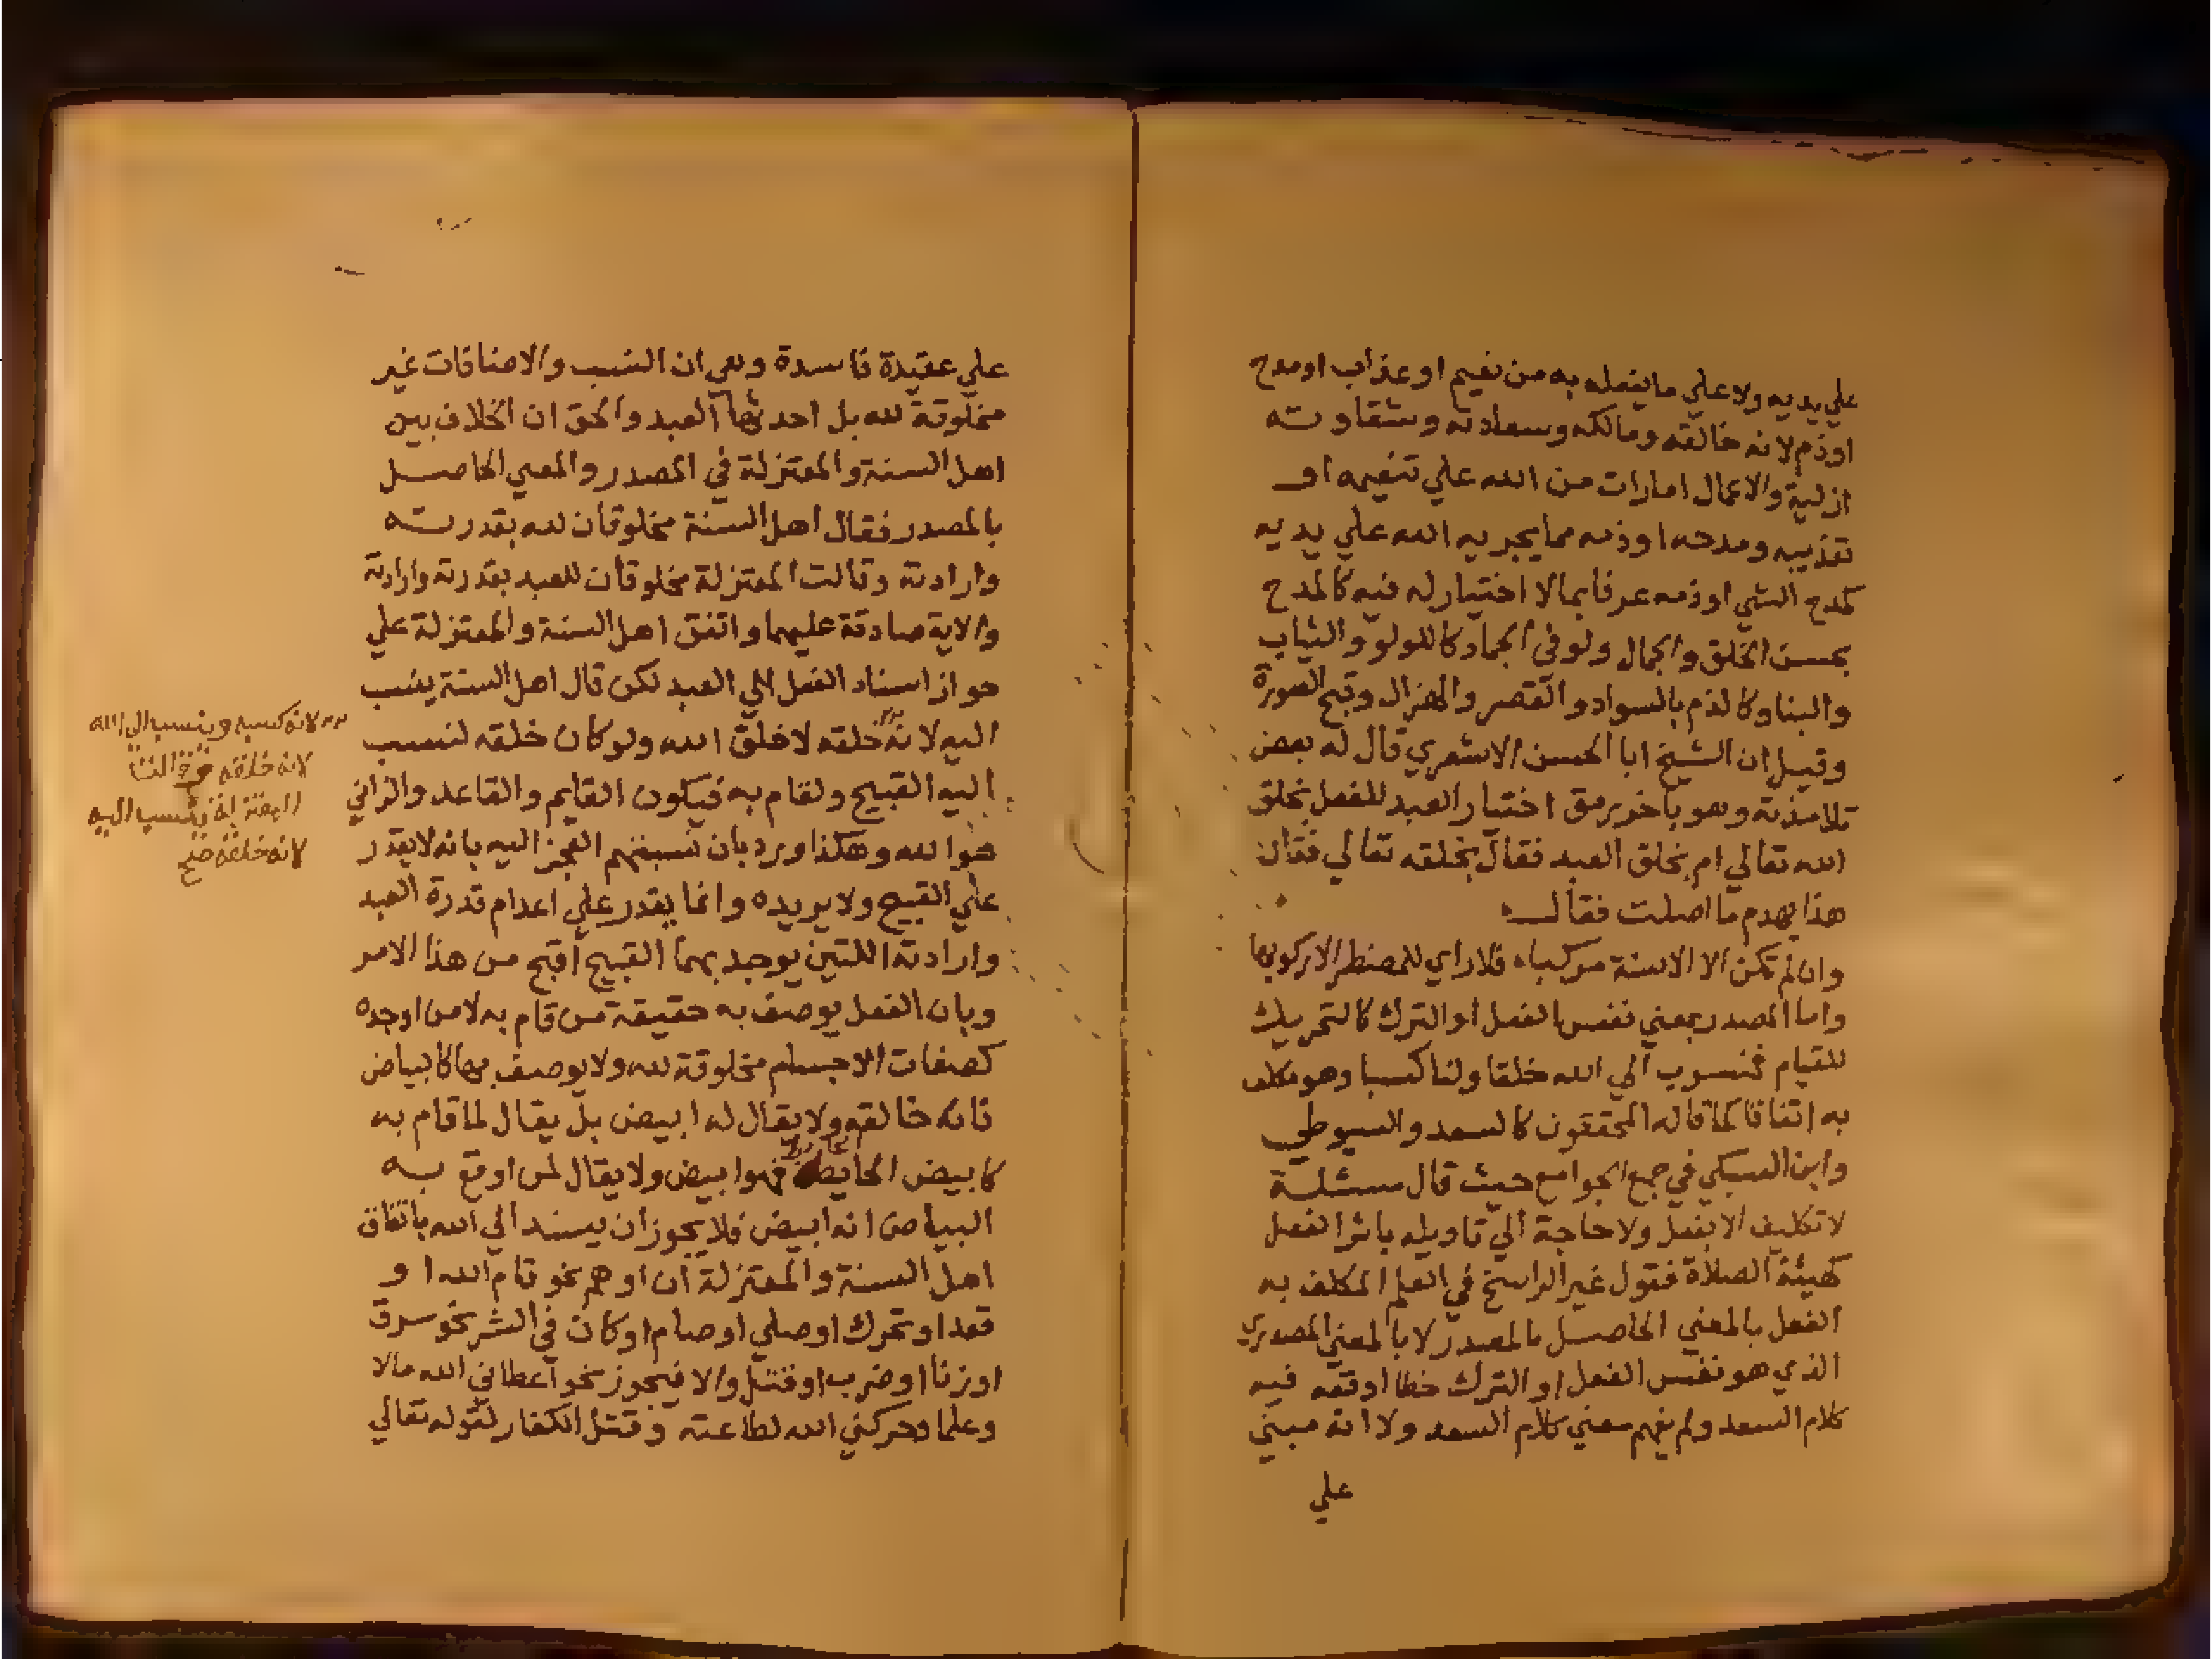 علي يديه ولا علي ما يفعله به من نعيم او عذاب او مدح
او ذم لانه خالقه ومالكه وسعادته وشقاوته
ازلية والاعمال امارات من الله علي تنعيمه او
تعذيبه ومدحه او ذمه مما يجريه الله علي يديه
كمدح الشي او ذمه عرفا بما لا اختيار له فيه كالمدح
بحسن الخلق والجمال ولو في الجماد كاللولو والثياب
والبنا وكالذم بالسواد والقصر والهزال وقبح الصورة
وقيل ان الشيخ ابا الحسن الاشعري قال له بعض
تلامذته وهو باخر رمق اختيار العبد للفعل بخلق
الله تعالي ام بخلق العبد فقال بخلقه تعالي فقال
هذا يهدم ما اصلت فقال
وان لم تكن الا الاسنة مركبا فلا راي للمضطر الا ركوبها
واما المصدر بمعني نفس الفعل او الترك كالتحريك
للقيام فمنسوب الي الله خلقا ولنا كسبا وهو مكلف
به اتفاقا كما قاله المحققون كالسعد والسيوطي
وابن السبكي في جمع الجوامع حيث قال مسئلة
لا تكليف الا بفعل ولا حاجة الي تاويله باثر الفعل
كهيئة الصلاة فقول غير الراسخ في العلم المكلف به
الفعل بالمعني الحاصل بالمصدر لا بالمعني المصدري
الذي هو نفس الفعل او الترك خطا اوقعه فيه
كلام السعد ولم يفهم معني كلام السعد ولا انه مبني
علي
علي عقيدة فاسدة وهي ان النسب والاضافات غير
مخلوقة لله بل احدثها العبد والحق ان الخلاف بين
اهل السنة والمعتزلة في المصدر والمعني الحاصل
بالمصدر فقال اهل السنة مخلوقان لله بقدرته
وارادته وقالت المعتزلة مخلوقان للعبد بقدرته وارادته
والاية صادقة عليهما واتفق اهل السنة والمعتزلة علي
جواز اسناد الفعل الي العبد لكن قال اهل السنة ينسب
اليه لانه خلقه لا خلق الله ولو كان خلقه لنسب
اليه القبيح ولقام به فيكون القايم والقاعد والزاني
هو الله وهكذا ورد بان نسبتهم العجز اليه بانه لا يقدر
علي القبيح ولا يريده وانما يقدر علي اعدام قدرة العبد
وارادته اللتين يوجد بهما القبيح اقبح من هذا الامر
وبان الفعل يوصف به حقيقة من قام به لا من اوجده
كصفات الاجسام مخلوقة لله ولا يوصف بها كالبياض
فانه خالقه ولا يقال له ابيض بل يقال لما قام به
كابيض الحايط فهو ابيض ولا يقال لمن اوقع به
البياض انه ابيض فلا يجوز ان يسند الي الله باتفاق
اهل السنة والمعتزلة ان اوهم نحو قام الله او
قعد او تحرك او صلي او صام او كان في الشر نحو سرق
او زنا او ضرب او قتل والا فيجوز نحو اعطاني الله مالا
وعلما وحركني الله لطاعته وقتل الكفار لقوله تعالي
لانه كسبه وينسب الي الله
لانه خلقه وقالت
المعتزلة ينسب اليه
لانه خلقه صح